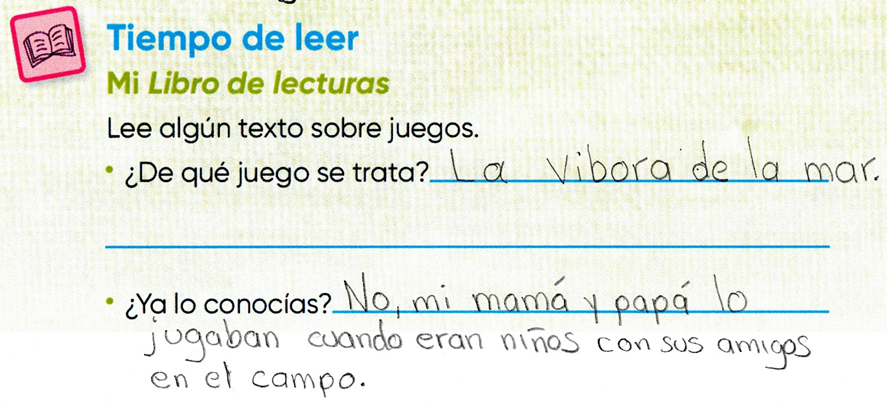 Tiempo de leer
Mi Libro de lecturas
Lee algún texto sobre juegos.
• ¿De qué juego se trata? La Vibora de la mar.
• ¿Ya lo conocías? No, mi mamá y papá lo
jugaban cuando eran niños con sus amigos
en el campo.